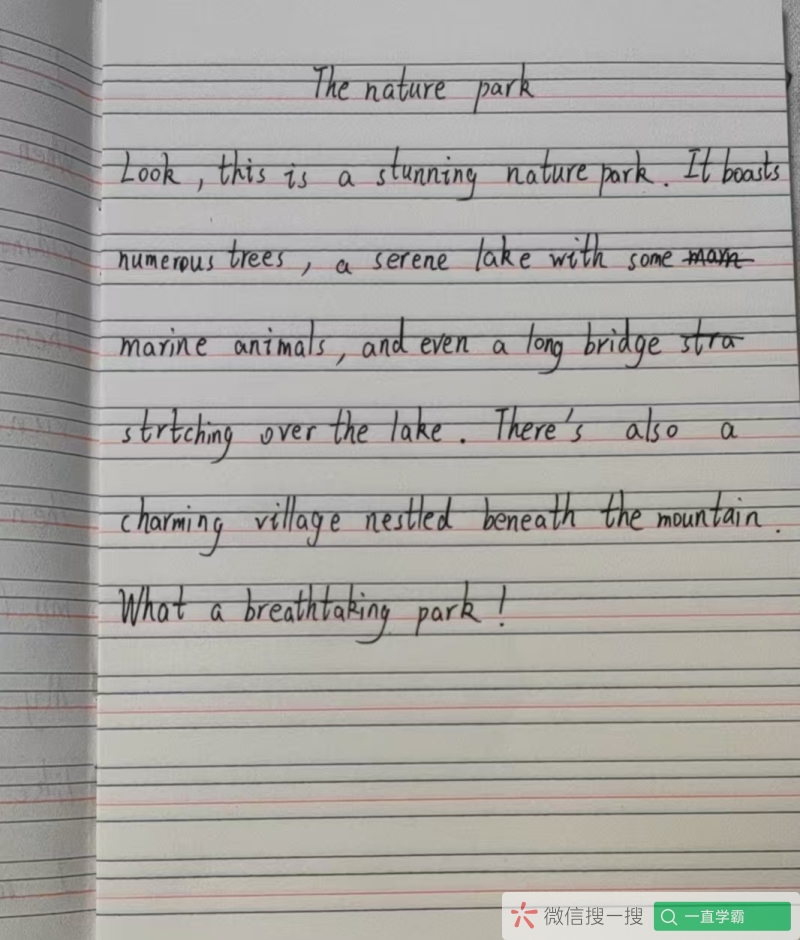 The nature park
Look, this is a stunning nature park. It boasts
numerous trees, a serene lake with some
marine animals, and even a long bridge stra
strtching over the lake. There's also a
charming village nestled beneath the mountain.
What a breathtaking park!
微信搜一搜 一直学霸